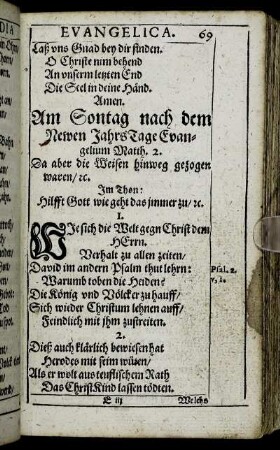 EVANGELICA. 69
Laß vns Gnad bey dir finden.
O Christe nim behend
An vnserm letzten End
Die Seel in deine Händ.
Amen.
Am Sontag nach dem
Newen Jahrs Tage Evan-
gelium Matth. 2.
Da aber die Weisen hinweg gezogen
waren/ ꝛc.
Im Thon:
Hilff Gott wie geht das jmmer zu/ ꝛc.
1.
WIe sich die Welt gegn Christ dem
HErrn.
Verhalt zu allen zeiten/
David im andern Psalm thut lehrn:
Psal. 2.
v. 1.
Warumb toben die Heiden?
Die König vnd Völcker zu hauff/
Sich wider Christum lehnen auff/
Feindlich mit jhm zustreiten.
2.
Dieß auch klärlich bewiesen hat
Herodes mit seim wüten/
Als er wolt aus teuflischem Rath
Das Christ Kind lassen tödten.
E iij Welchs